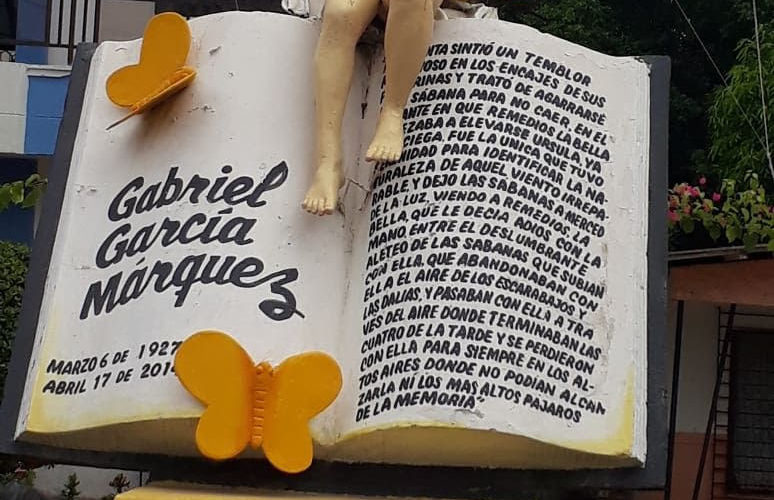 Gabriel
García
Márquez
MARZO 6 DE 1927
ABRIL 17 DE 2014
NTA SINTIÓ UN TEMBLOR
OSO EN LOS ENCAJES DE SUS
RINAS Y TRATÓ DE AGARRARSE
SÁBANA PARA NO CAER, EN EL
ANTE EN QUE REMEDIOS LA BELLA
EZABA A ELEVARSE URSULA, YA
CIEGA, FUE LA UNICA QUE TUVO
NIDAD PARA IDENTIFICAR LA NA-
URALEZA DE AQUEL VIENTO IRREPA-
RABLE, Y DEJO LAS SABANAS A MERCED
DE LA LUZ, VIENDO A REMEDIOS, LA
BELLA, QUE LE DECIA ADIOS CON LA
MANO, ENTRE EL DESLUMBRANTE
ALETEO DE LAS SABANAS QUE SUBIAN
CON ELLA, QUE ABANDONABAN CON
ELLA EL AIRE DE LOS ESCARABAJOS Y
LAS DALIAS, Y PASABAN CON ELLA A TRA
VES DEL AIRE DONDE TERMINABAN LAS
CUATRO DE LA TARDE Y SE PERDIERON
CON ELLA PARA SIEMPRE EN LOS AL-
TOS AIRES DONDE NO PODIAN ALCAN
ZARLA NI LOS MAS ALTOS PÁJAROS
DE LA MEMORIA"